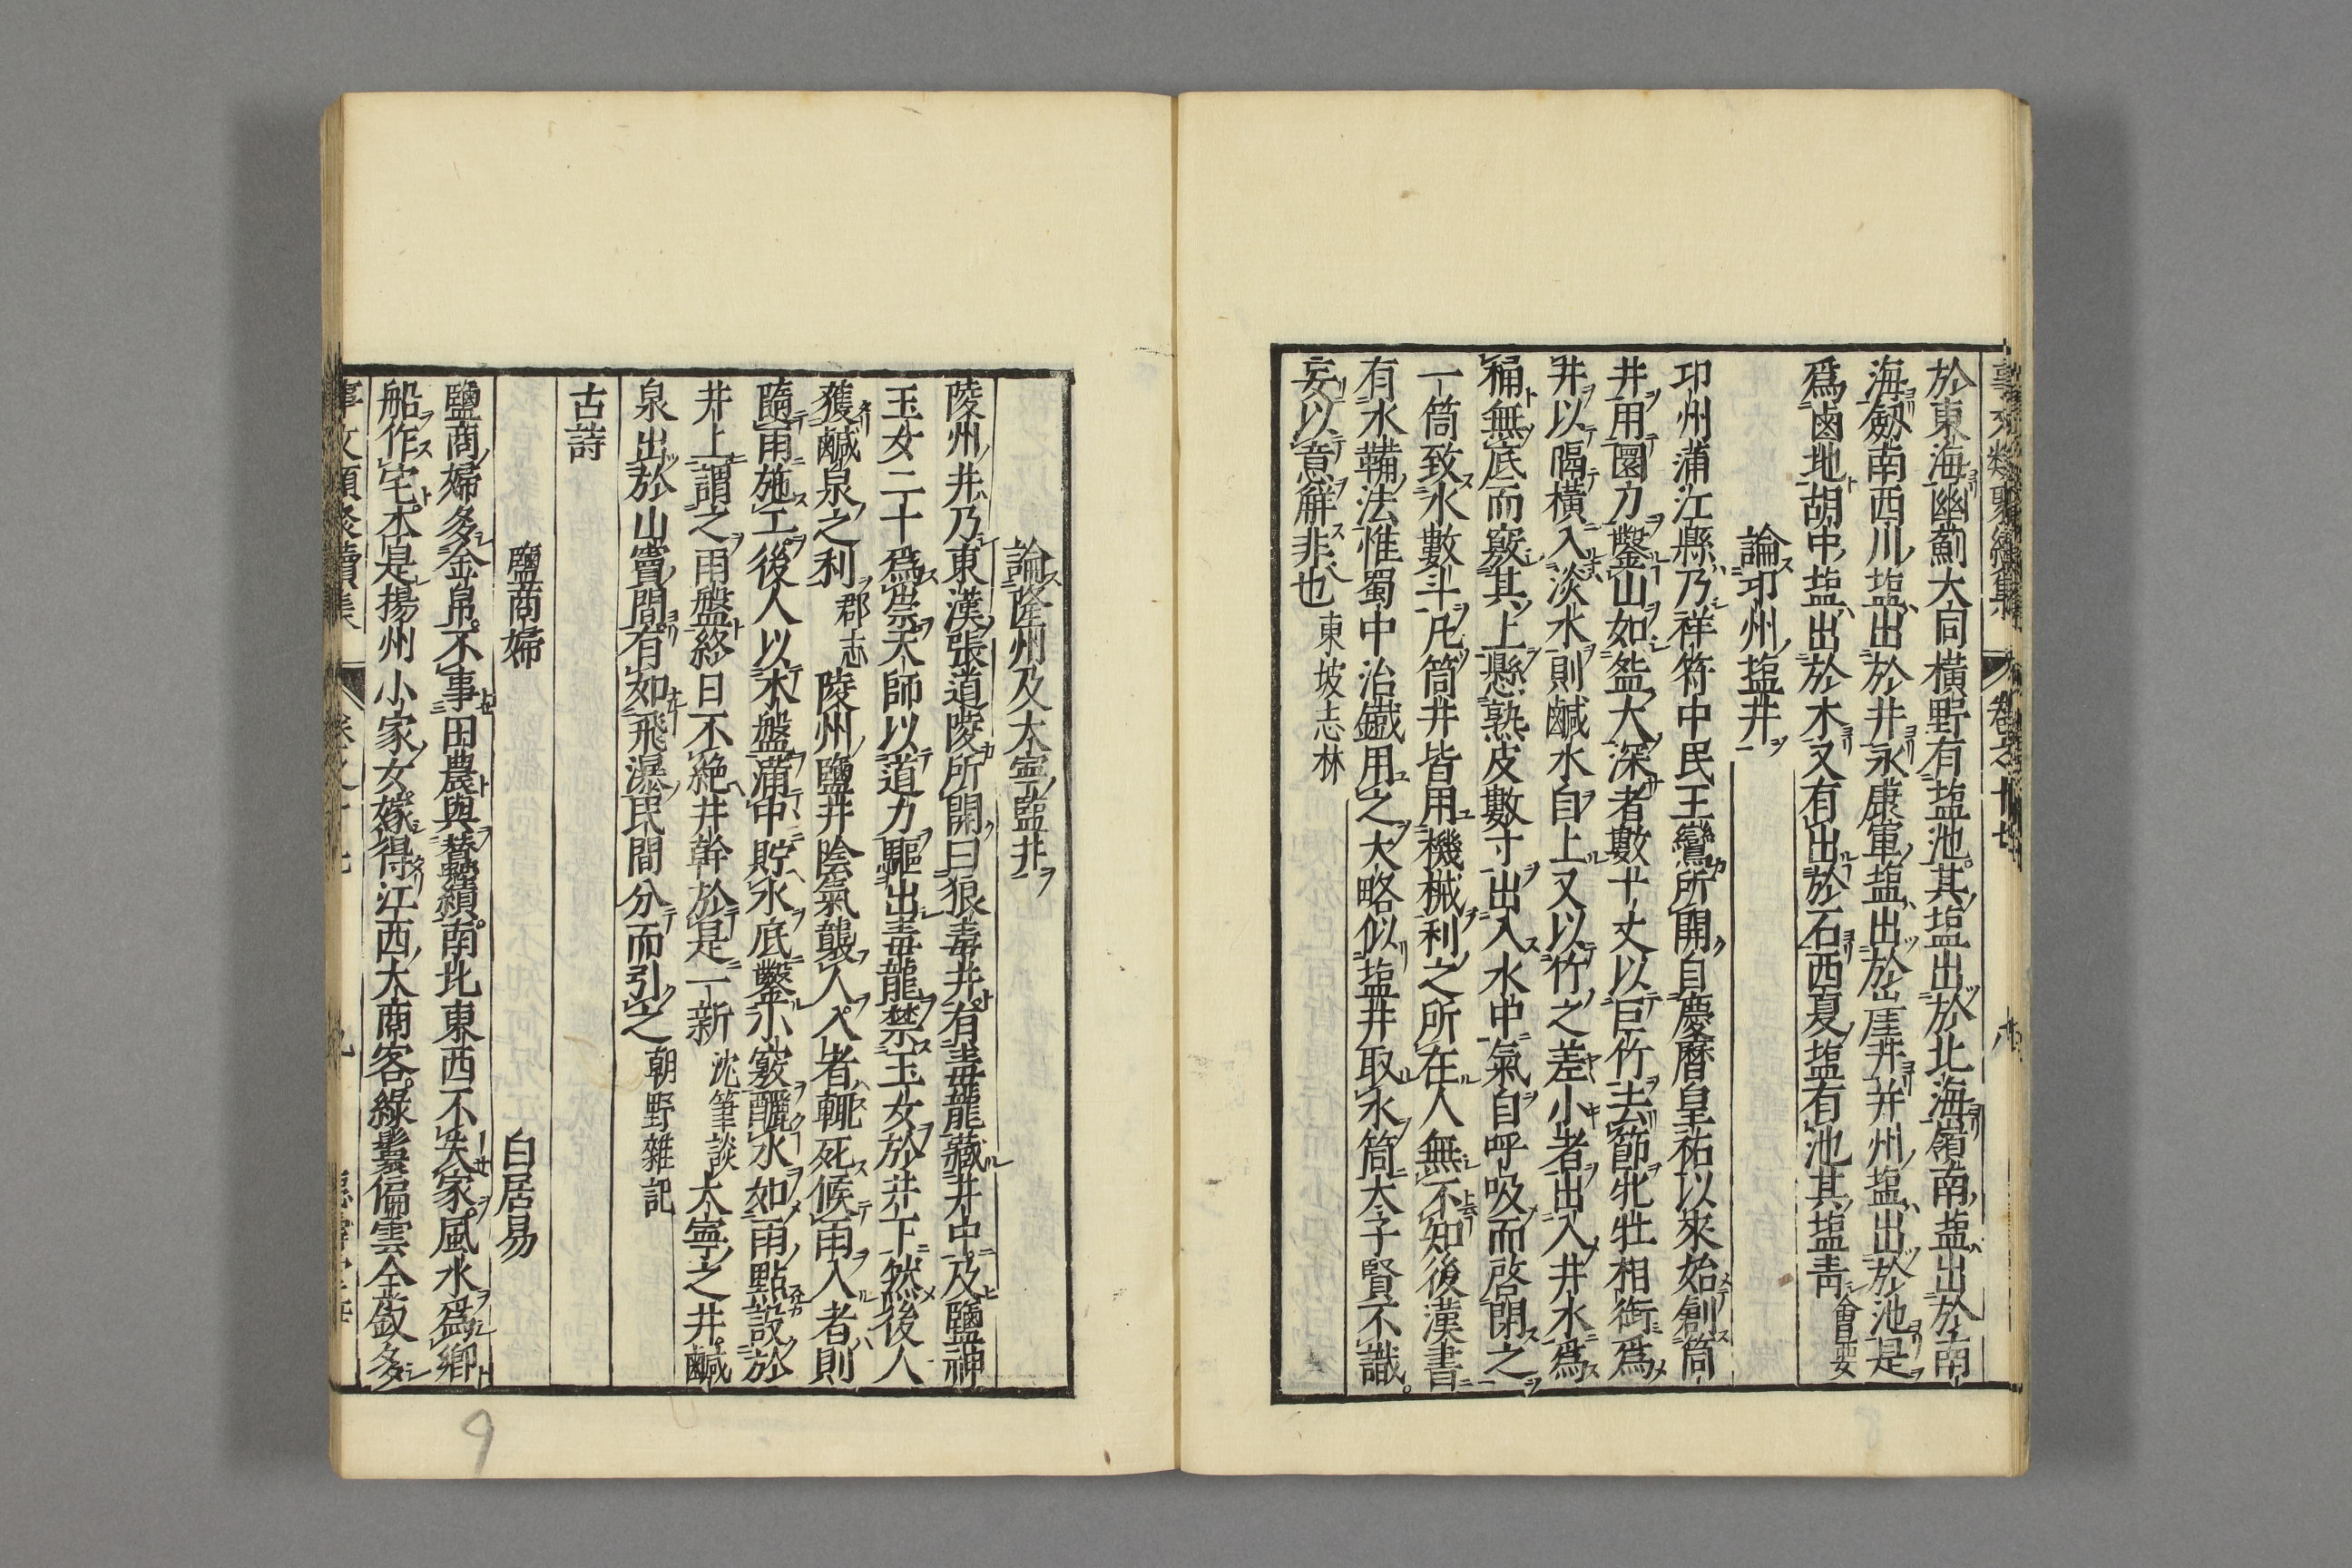 於東海幽薊大同橫野有塩池其塩出於北海嶺南塩出於南
海劔南西川塩出於井永康軍塩出於崖井并州塩出於池是
爲鹵地胡中塩出於木又有出於石西夏塩有池其塩靑會要
論卭州塩井
卭州蒲江縣乃祥符中民王鸞所開自慶曆皇祐以來始創筒
井用圜刃鑿山如盌大深者數十丈以巨竹去節牝牡相銜爲
井以隔橫入淡水則鹹水自上又以竹之差小者出入井水爲
桶無底而竅其上懸熟皮數寸出入水中氣自呼吸而啓閉之
一筒致水數斗凡筒井皆用機械利之所在人無不知後漢書
有水鞴法惟蜀中治鐵用之大略似塩井取水筒太子賢不識
妄以意解非也東坡志林
論隆州及大寧監井
陵州井乃東漢張道陵所開曰狼毒井有毒龍藏井中及鹽神
玉女二十爲祟天師以道力驅出毒龍禁玉女於井下然後人
獲鹹泉之利郡志陵州鹽井陰氣襲人入者輙死候雨入者則
隨雨施工後人以木盤滿中貯水底鑿小竅釃水如雨點設於
井上謂之雨盤終日不絶井幹於是一新沈筆談大寧之井鹹
泉出於山竇間有如飛瀑民間分而引之朝野雜記
古詩
鹽商婦 白居易
鹽商婦多金帛不事田農與蠶績南北東西不失家風水爲鄕
船作宅本是揚州小家女嫁得江西大商客綠鬟偏雲金釵多